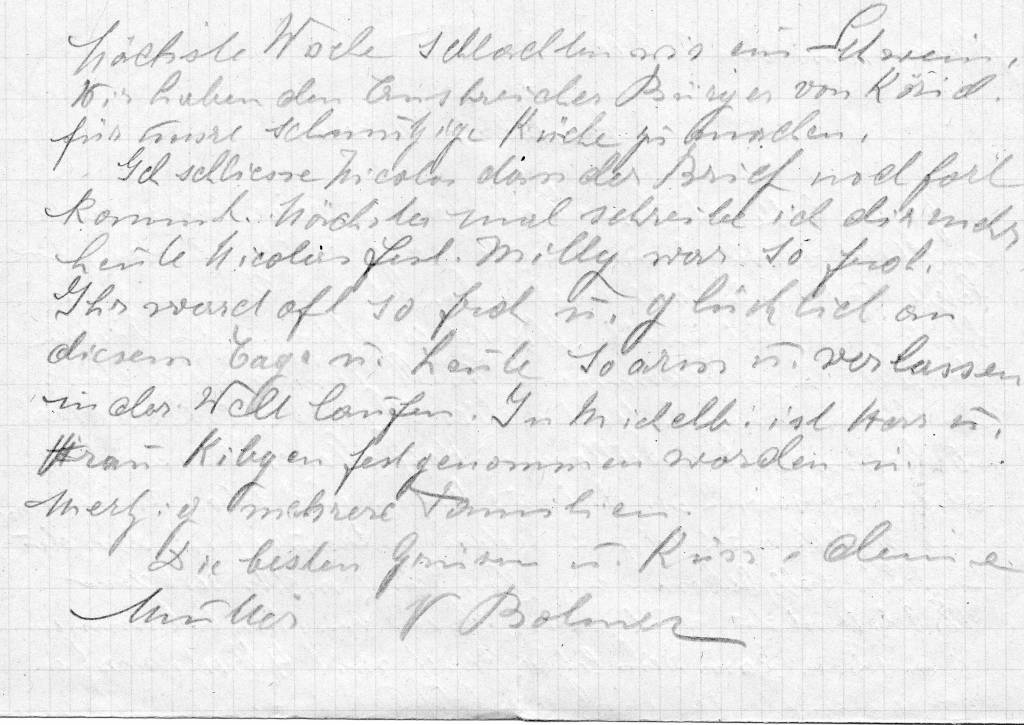 Nächste Woche schlachten wir ein Schwein,
Wir haben den Anstreicher Bürger von
für unsre schmutzige Küche zu machen.
Ich schliesse Nicolas dass der Brief noch fort
kommt. Nächstes mal schreibe ich dir mehr
heute Nicolas fest. Milly war so froh.
Ihr ward oft so froh u. glücklich an
diesem Tage u. heute so arm u. verlassen
in der Welt laufen. In Michelb. ist Herr u.
Frau festgenommen worden u.
Merzig mehrere Familien.
Die besten Grüsse u. Küsse deine
Mutter